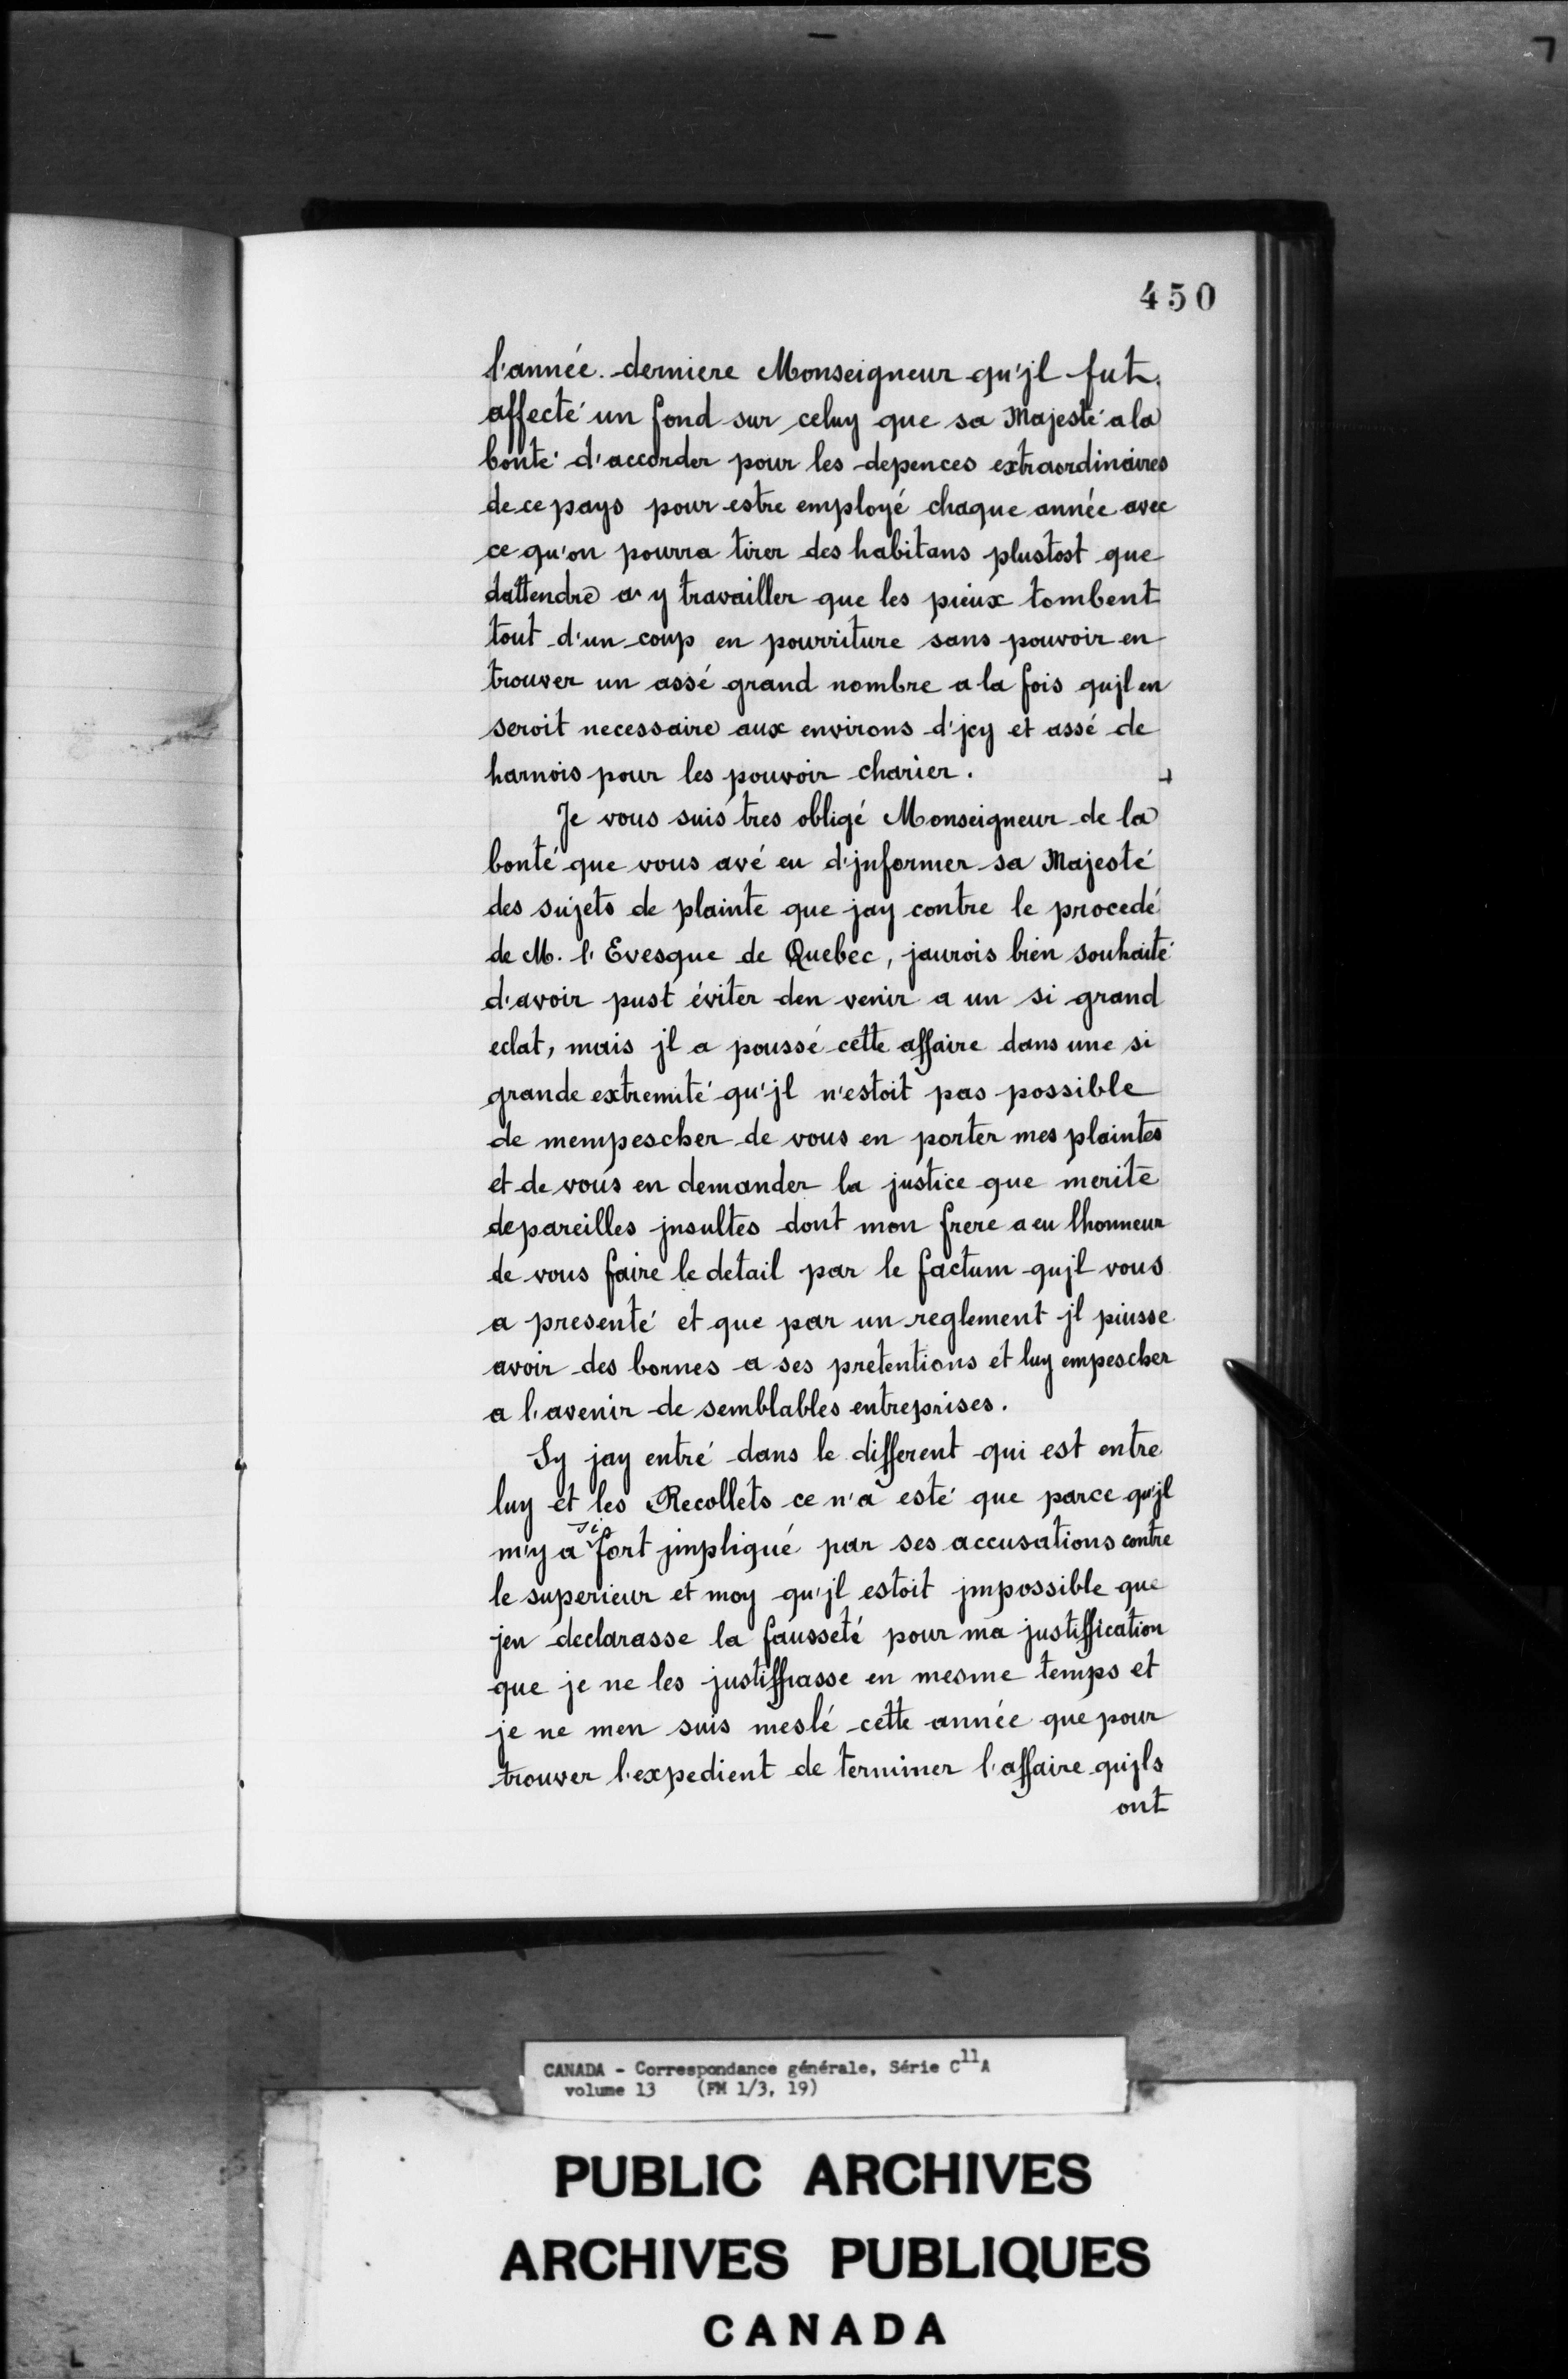 450
l'année derniere Monseigneur qu'jl fut
affecté un fond sur celuy que sa Majesté a la
bonté d'accorder pour les depences extraordinaires
de ce pays pour estre employé chaque année avec
ce qu'on pourra tirer des habitans plustost que
dattendre a y travailler que les pieux tombent
tout d'un coup en pourriture sans pouvoir en
trouver un assé grand nombre a la fois qujl en
seroit necessaire aux environs d'jcy et assé de
harnois pour les pouvoir charier.
Je vous suis tres obligé Monseigneur de la
bonté que vous avé eu d'jnformer sa Majesté
des sujets de plainte que jay contre le procedé
de M. l'Evesque de Quebec, jaurois bien souhaité
d'avoir pust éviter den venir a un si grand
eclat, mais jl a poussé cette affaire dans une si
grande extremité qu'jl n'estoit pas possible
de mempescher de vous en porter mes plaintes
et de vous en demander la justice que merite
de pareilles jnsultes dont mon frere a eu lhonneur
de vous faire le detail par le factum qujl vous
a presenté et que par un reglement jl puisse
avoir des bornes a ses pretentions et luy empescher
a l'avenir de semblables entreprises.
Sy jay entré dans le different qui est entre
luy et les Recollets ce n'a esté que parce qu'jl
m'y a si fort jmpliqué par ses accusations contre
le superieur et moy qu'jl estoit jmpossible que
jen declarasse la fausseté pour ma justiffication
que je ne les justiffiasse en mesme temps et
je ne men suis meslé cette année que pour
trouver l'expedient de terminer l'affaire qujls
ont
CANADA - Correspondance générale, Série C11A
volume 13 (FM 1/3, 19)
PUBLIC ARCHIVES
ARCHIVES PUBLIQUES
CANADA